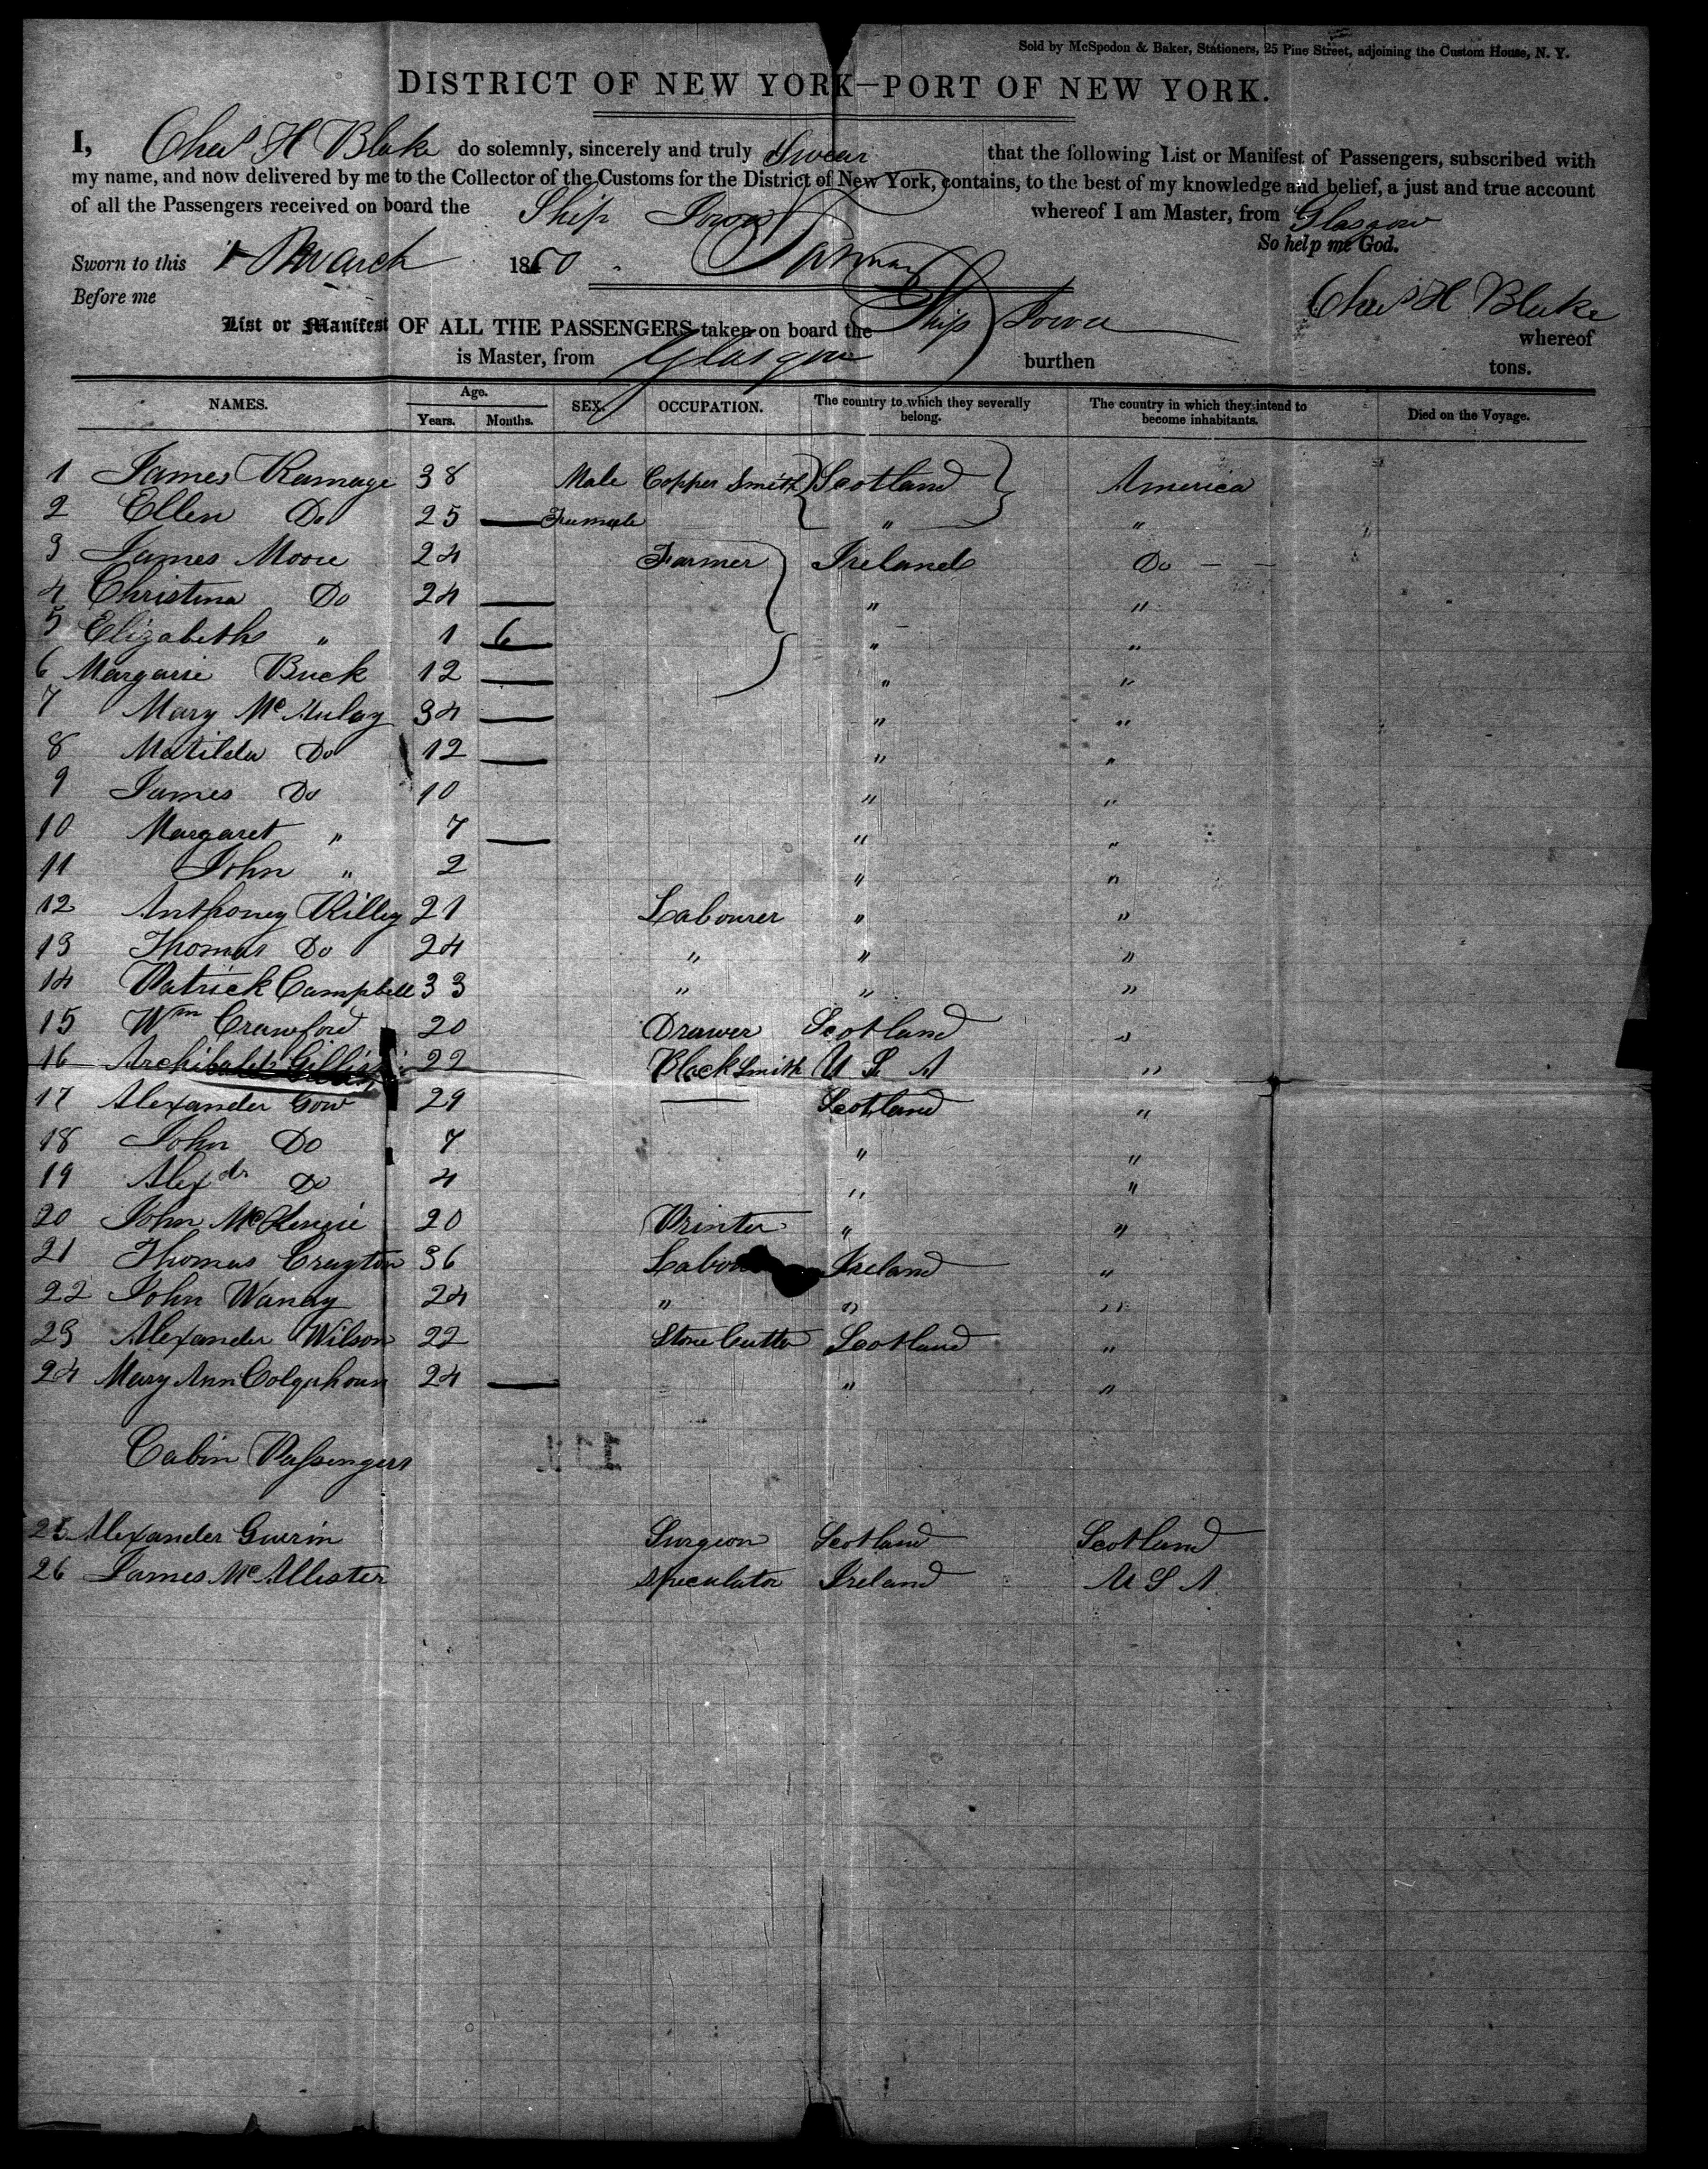 Sold by McSpedon & Baker, Stationers, 25 Pine Street, adjoining the Custom House, N. Y.
DISTRICT OF NEW YORK—PORT OF NEW YORK.
I, Chas H Blake do solemnly, sincerely and truly Swear that the following List or Manifest of Passengers, subscribed with
my name, and now delivered by me to the Collector of the Customs for the District of New York, contains, to the best of my knowledge and belief, a just and true account
of all the Passengers received on board the Ship Iowa whereof I am Master, from Glasgow
So help me God.
Sworn to this 1 March 1850
Before me Chas H Blake
List or Manifest OF ALL THE PASSENGERS taken on board the Ship Iowa whereof
is Master, from Glasgow burthen tons.
NAMES. Age. Years. Months. SEX. OCCUPATION. The country to which they severally belong. The country in which they intend to become inhabitants. Died on the Voyage.
1 James Ramage 38 Male Copper Smith Scotland America
2 Ellen Do 25 — Feemale " "
3 James Moore 24 Farmer Ireland Do — —
4 Christina Do 24 — " "
5 Elizabeth " 1 6 " "
6 Margarie Buck 12 — " "
7 Mary McAulay 34 — " "
8 Matilda Do 12 — " "
9 James Do 10 " "
10 Margaret " 7 — " "
11 John " 2 " "
12 Anthoney Killey 21 Labourer " "
13 Thomas Do 24 " " "
14 Patrick Campbell 33 " " "
15 Wm Crawford 20 Drawer Scotland "
16 Archibald Gillis 22 BlackSmith U S A "
17 Alexander Gow 29 — Scotland "
18 John Do 7 " "
19 Alexdr Do 4 " "
20 John McKenzie 20 Printer " "
21 Thomas Crayton 36 Ireland "
22 John 24 " " "
23 Alexander Wilson 22 Stone Cutter Scotland "
24 Mary Ann Colquhoun 24 — " "
Cabin Passengers
25 Alexander Guerin Surgeon Scotland Scotland
26 James McAllester Speculator Ireland U S A